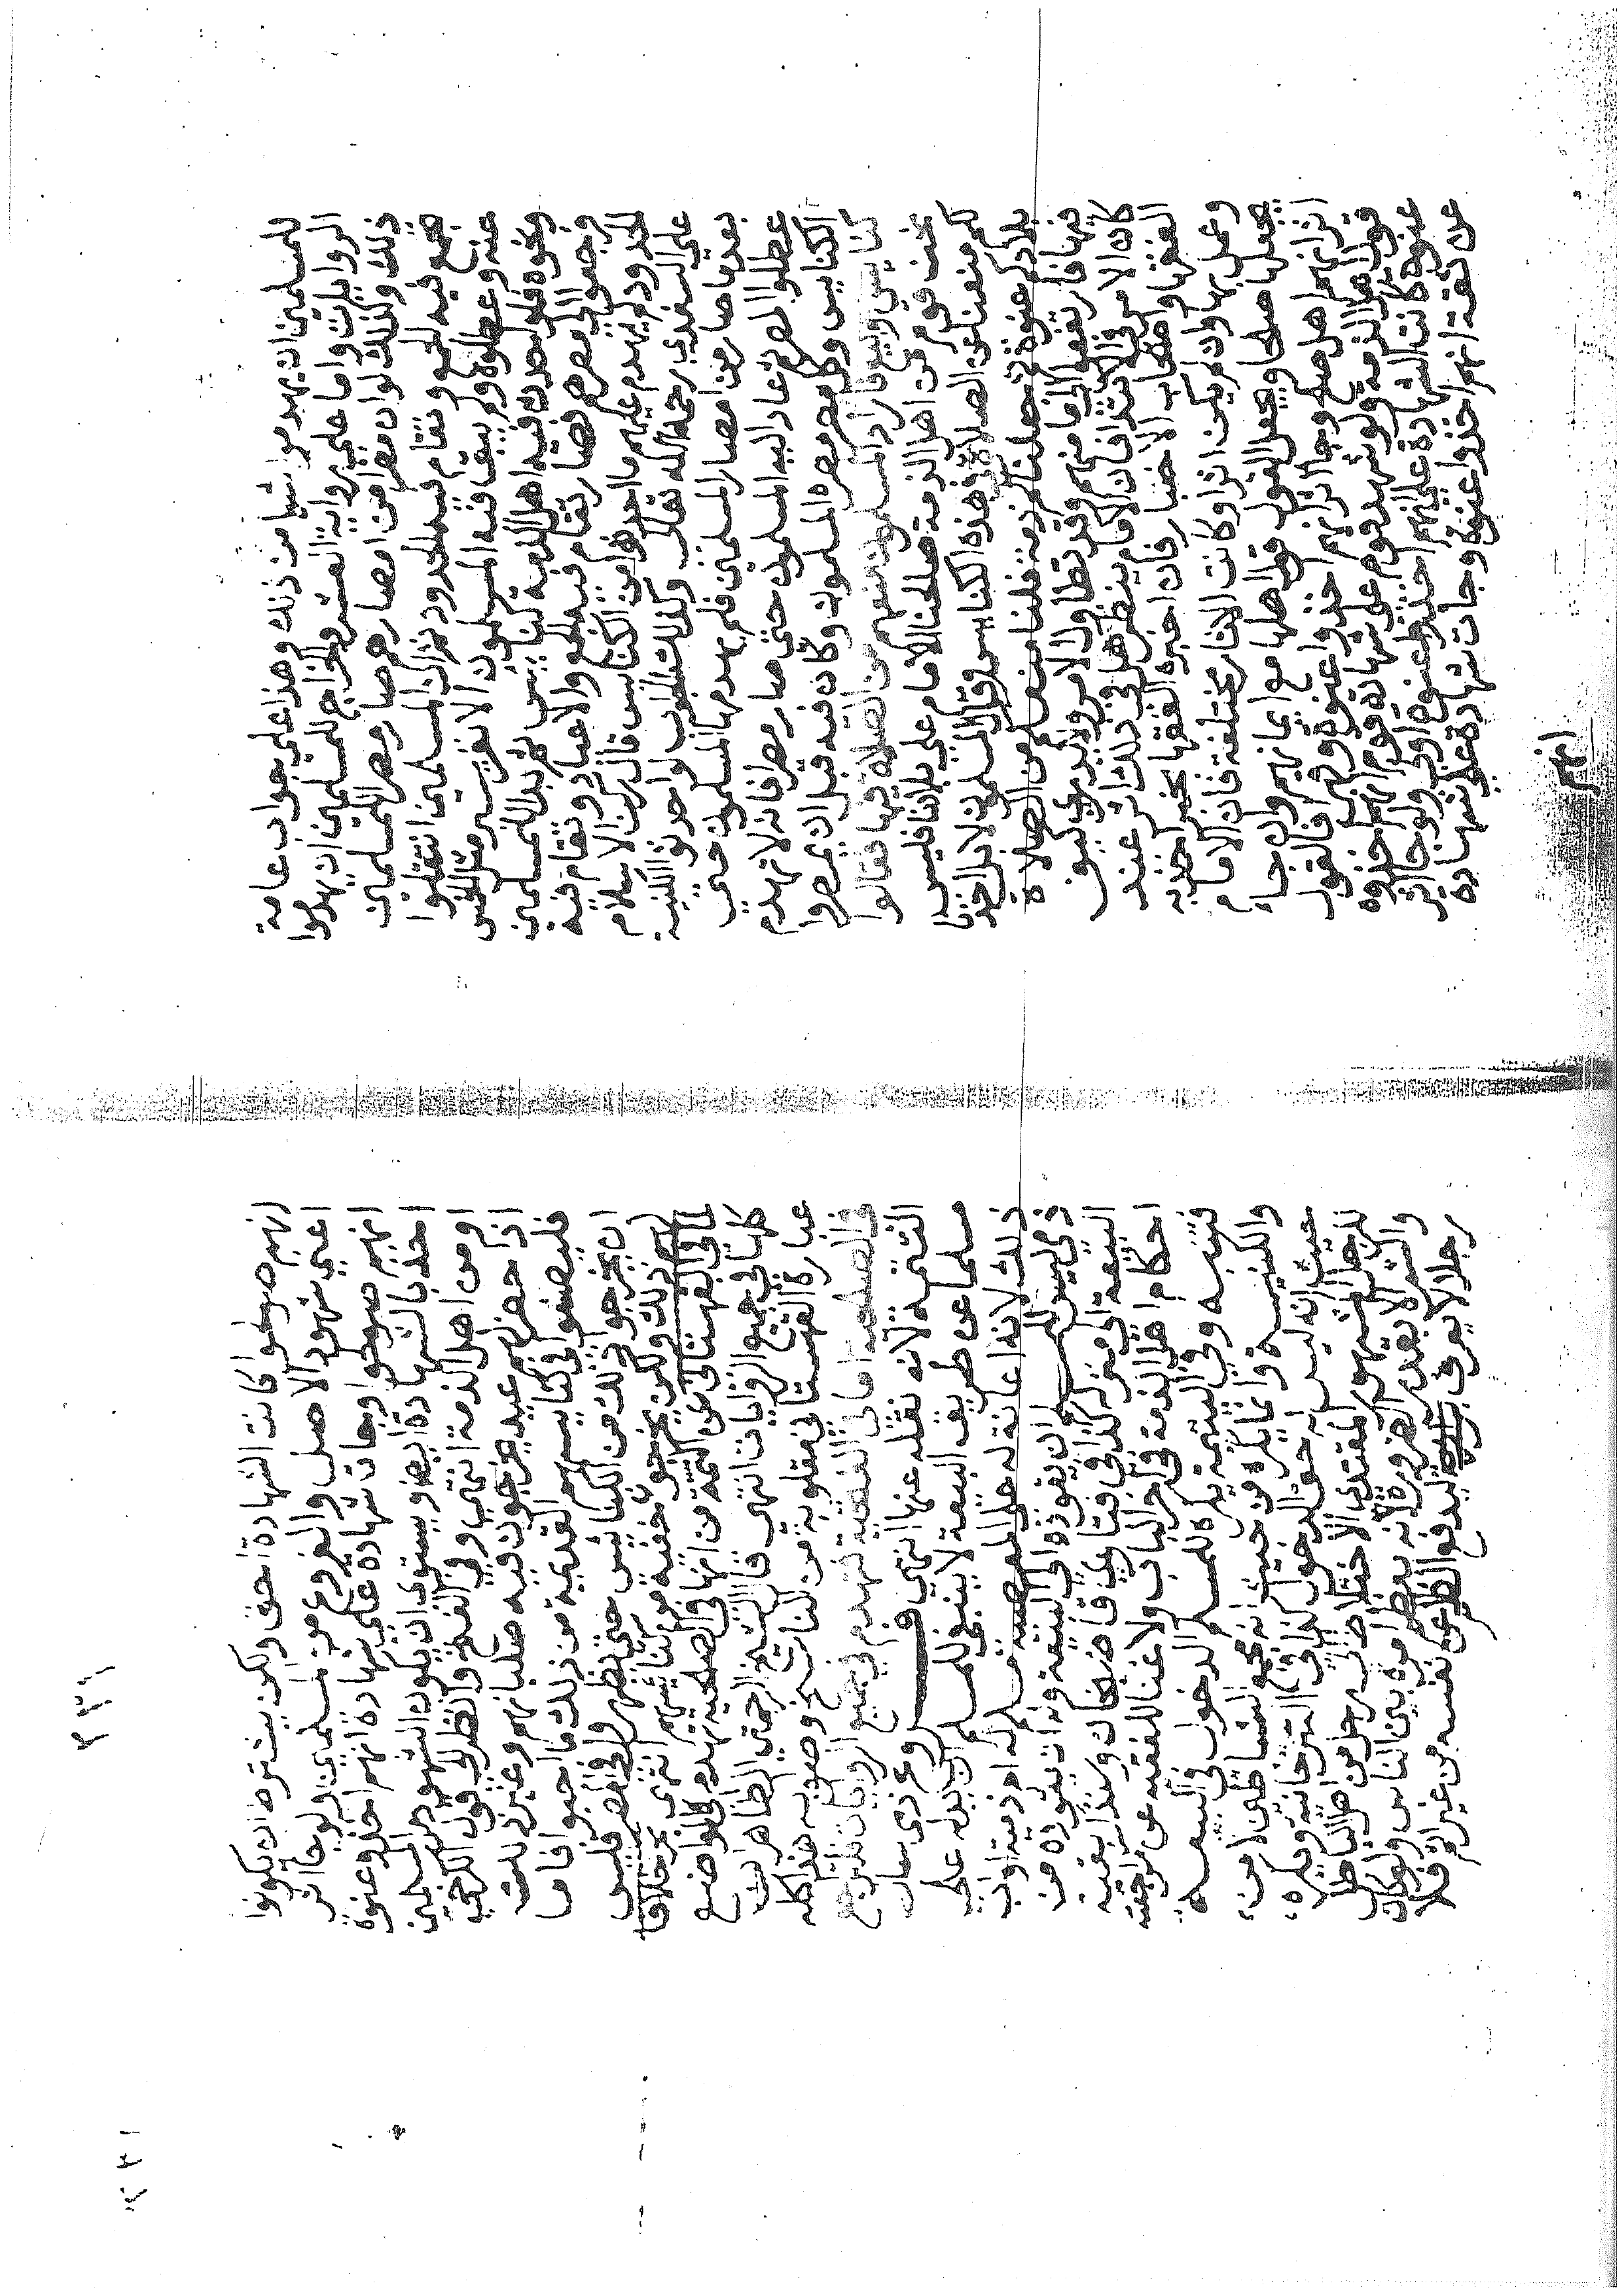 للمسلمين ان يهدموا شيا من ذلك وهذا على جواب عامة
الروايات واما على رواية العشر والخراج للمسلمين ان يهدموا
ذلك وكذلك لو ان مصرا من امصارهم صار مصرا للمسلمين
يجمع فيه الجمع وتقام فيه الحدود ثم ان المسلمين انتقلوا
عنه وعطلوه ولم يبق فيه المسلمون الا نفر يسير مثل الخمس
ونحوه فلو احدث فيه اهل الذمة كنايس ثم بدا للمسلمين
فرجعوا الى مصرهم فصار تقام فيه الجمع والاعياد وتقام فيه
الحدود لم يهدم عليهم ما احدثوا من الكنايس قال ركن الاسلام
على السغدي رحمه الله تعالى وكذلك الجواب لو احدثوا الكنيسة
بعد ما صار من امصار المسلمين فلم يهدمها المسلمون حتى
عطلوا المصر ثم عاد اليه المسلمون حتى صار مصرا فانه لا تهدم
الكنايس وكل مصر مصره المسلمون وكان فيه قبل ان يمصروا
كنايس وبيع فاراد المسلمون منعهم من الصلاة فيها فقالوا
نحن قوم من اهل الذمة صالحنا الامام على بلادنا فليس
لكم منعنا عن الصلاة في هذه الكنايس وقال المسلمون لا بل اخذنا
بلادكم عنوة ثم جعلناكم ذمة فلنا منعكم من الصلاة
فيها فارتفعوا الى امامهم وقد تطاول الامر ولا يدرى كيف
كان الامر في ذلك فان الامام ينظر هل في ذلك اثر عند
الفقها واصحاب الاخبار فان اخبره الفقها بخبر اخذ به
وعمل به وان لم يكن اثر او كانت الاثار مختلفة فان الامام
يجعلها صلحا ويجعل القول قول اهلها مع ايمانهم وان جاء
اثر انهم اهل صلح وجا اثر انهم اخذوا عنوة وقهرا فالقول
قول اهل الذمة ولو شهد قوم على شهادة قوم انهم اخذوا
عنوة كانت الشهادة عليهم احق اخذوا عنوة اولى ولو جا اثر
عن ثقة انهم اخذوا عنوة وجات شهادة على شهادة
انهم
انهم صولحوا كانت الشهادة احق ولكن يشترط ان يكونوا
اعني شهود الاصل والفروع من المسلمين ولو جا اثر
انهم صولحوا وجات شهادة على شهادة انهم اخذوا عنوة
اخذ بالشهادة ايضا ويستوى ان يكون الشهود من المسلمين
او من اهل الذمة انتهى وفي
اذا حضر لهم عيد يخرجون فيه صلبانهم وغير ذلك
فليصنعوا في كنايسهم القديمة من ذلك ما احبوا فاما
ان يخرجوا ذلك من الكنايس حتى يظهر في المصر فليس
لهم ذلك ولكن يخرجون خفية من كنايسهم انتهى
ما في القهستاني عن التتمة من انها في الصلحية تهدم في المواضع
كلها في جميع الروايات انتهى قال الشيخ الرحمتي الظاهر ان
عبارة القهستاني مقلوبة من الناسخ وصوابه هذا كله
في الصلحية اما في العنوية تهدم في جميع الروايات فليراجع
التتمة لانه نقله عنها انتهى
مسلما عن طريق البيعة لا ينبغي للمسلم ان يدله على
ذلك لانه اعانة له على المعصية مسلم له ام ذمية او اب
ذمي ليس للمسلم ان يقوده الى البيعة وله ان يقوده من
البيعة الى منزله كذا في فتاوى قاضيخان وسيذكر بقية
احكام اهل الذمة في اخر الباب ولا غنا للفقيه عن مراجعته
فتنبه وفي التتمة يكره للمسلم الدخول في البيعة
والكنيسة وانما يكره من حيث انه مجمع الشياطين لا من
حيث انه ليس له حق الدخول كذا في التترخانية ويكره
للرجل المشهور المقتدى الاختلاط الى رجل من اهل الباطل
والشر الا بقدر الضرورة لانه يعظم امره بين الناس ولو كان
رجلا لا يعرف يداريه ليدفع الظلم عن نفسه من غير اثم فلا
٢٣١